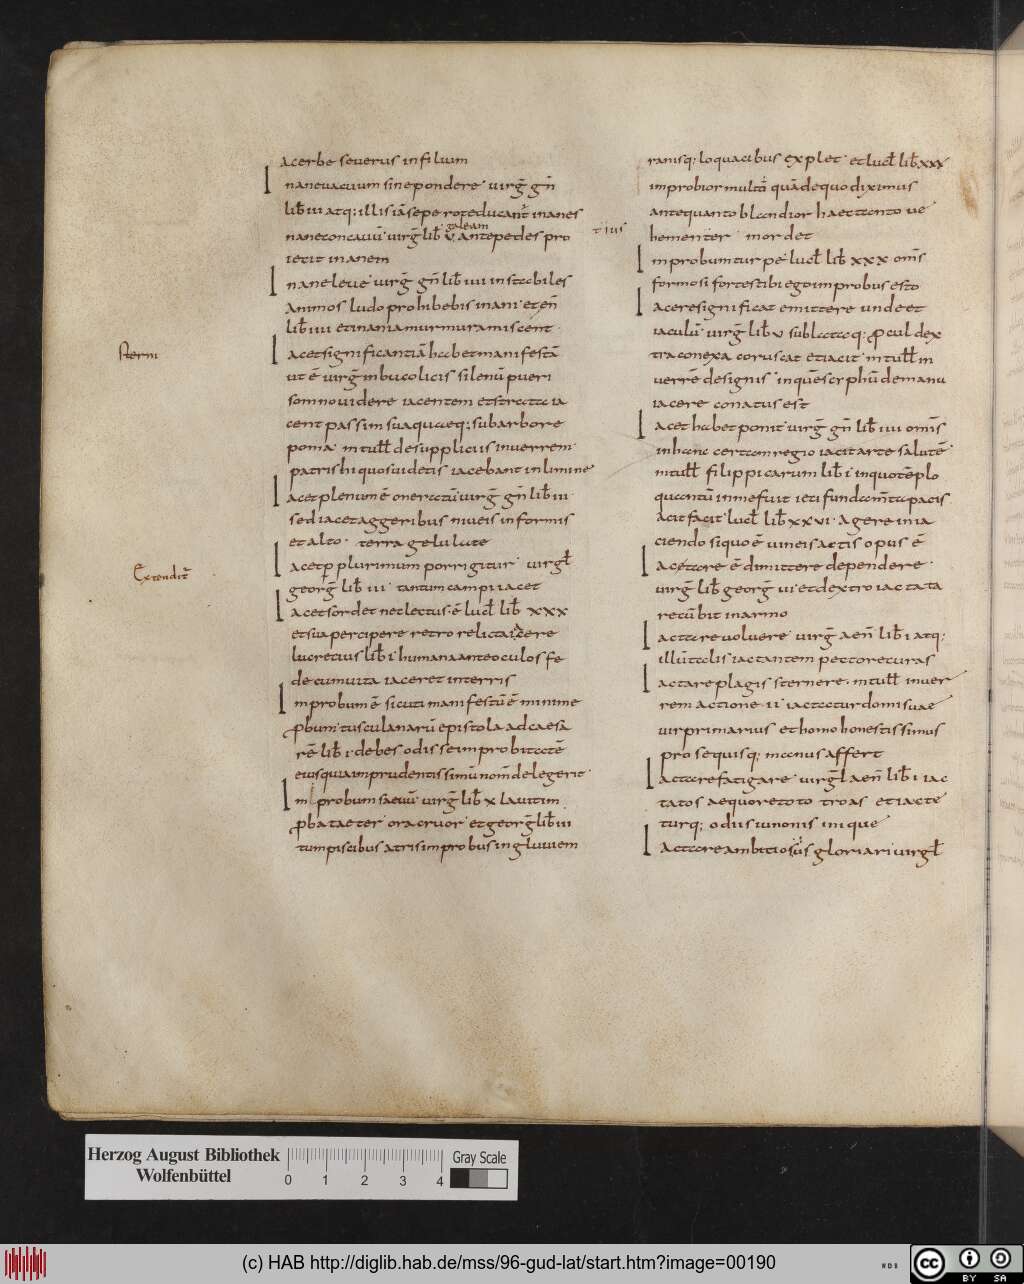 acerbe severus in filium
Inane vacuum sine pondere virg̅ gn̅
lib̅ vi atq; illi sua̅ sepe rotae ducant inanes
galeam
Inane concavu̅ virg̅ lib̅ v ante pedes pro
iecit inanem
Inane leve virg̅ gn̅ lib̅ iiii instabiles
animos ludo prohibebis inani et en̅
lib̅ iiii et inania murmura miscent
Iacet significantia̅ habet manifesta̅
ut e̅ virg̅ in bucolicis silenu̅ pueri
Sterni
somno videre iacentem et strata ia
cent passim sua quaeq; sub arbore
poma in tull̅ de suppliciis in verrem
patris hi quos videtis iacebant in limine
Iacet plenum e̅ oneratu̅ virg̅ gn̅ lib̅ iii
sed iacet aggeribus niveis informis
et alto terra gelu late
Iacet p plurimum porrigitur virgl̅
Extendit̅
georg̅ lib̅ iii tantum campi iacet
Iacet sordet neclectus e̅ lucl̅ lib̅ xxx
et sua percipere retro relicta iacere
lucretius lib̅ i humana ante oculos fe
de cum vita iaceret in terris
Improbum e̅ sicuti manifestu̅ e̅ minime
probum tusculanaru̅ epistola ad caesa
re̅ lib̅ i debes odisse improbitate̅
eius qua imprudentissimu̅ nom̅ delegerit
Improbum saevu̅ virg̅ lib̅ x lavit im
proba taeter ora cruor et georg̅ lib̅ iii
tum piscibus atris improbus ingluviem
ranisq; loquacibus explet et lucl̅ lib̅ xxx
improbior multo qua̅ de quo diximus
ante quanto blandior haec tanto ve
tius
hementer mordet
Improbum turpe lucl̅ lib̅ xxx om̅s
formosi fortes tibi ego improbus esto
Iacere significat emittere unde et
iaculu̅ virg̅ lib̅ v sublataq; procul dex
tra conexa coruscat et iacit in tull̅ in
verre̅ de signis
iacere conatus est
Iacet habet ponit virg̅ gn̅ lib̅ iiii om̅s
in hanc certam regio iacit arte salute̅
in tull̅ filippicarum lib̅ i in quo te̅plo
quantu̅ in me fuit ieci fundam̅ta pacis
Iacit facit lucl̅ lib̅ xxvi agere in ia
ciendo siquo e̅ vineis actis opus e̅
Iacere e̅ dimittere dependere
virg̅ lib̅ georg̅ vi et dextro iactata
recu̅bit in armo
Iactare volvere virg̅ aen̅ lib̅ i atq;
illu̅ talis iactantem pectore curas
Iactare plagis sternere in tull̅ in ver
rem actione ii iactatur domi suae
vir primarius et homo honestissimus
pro se quisq; manus affert
Iactare fatigare virgl̅ aen̅ lib̅ i iac
tatos aequore toto troas et iacte
turq; odiis iunonis inique
Iactare ambitiosius gloriari virgl̅
Herzog August Bibliothek
Wolfenbüttel
0 1 2 3 4
Gray Scale
(c) HAB http://diglib.hab.de/mss/96-gud-lat/start.htm?image=00190
WDB
cc BY SA